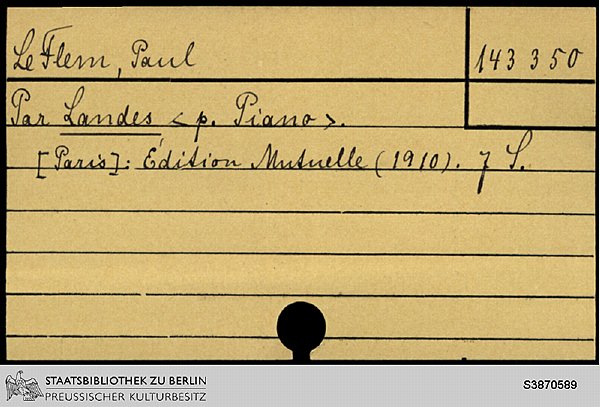 Le Flem, Paul
143 350
Par Landes < p. Piano >.
[Paris]: Édition Mutuelle (1910). 7 S.
STAATSBIBLIOTHEK ZU BERLIN
PREUSSISCHER KULTURBESITZ
S3870589